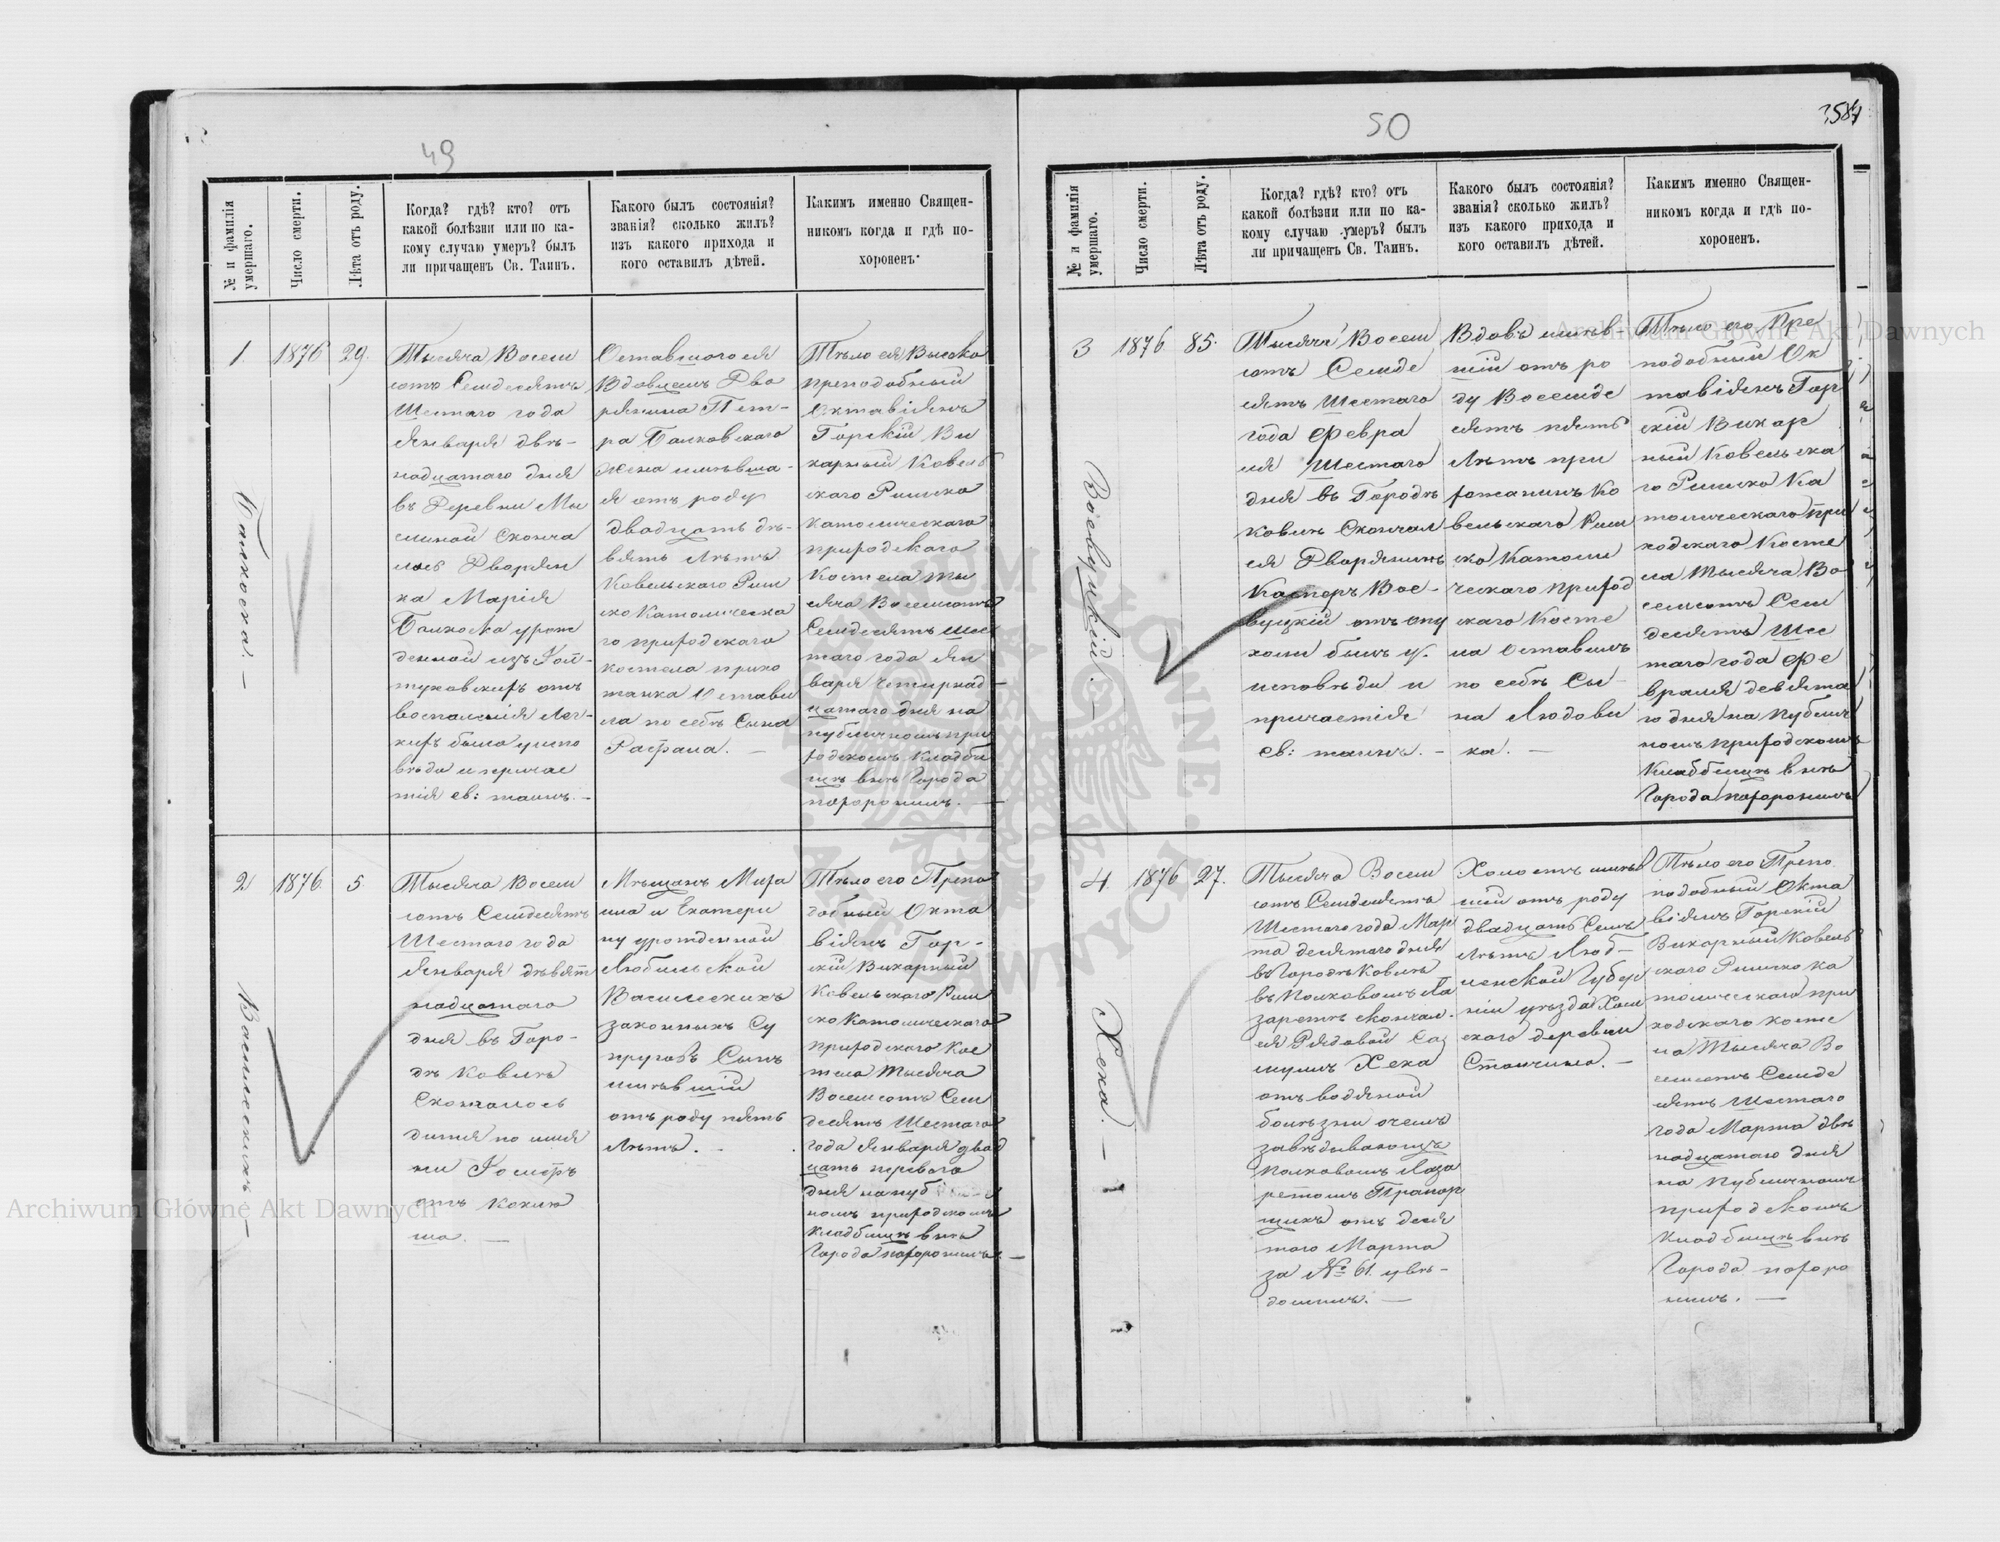 49
№ и фамилія
умершаго.
Число смерти.
Лѣта отъ роду.
Когда? гдѣ? кто? отъ
какой болѣзни или по ка-
кому случаю умеръ? былъ
ли причащенъ Св. Таинъ.
Какого былъ состоянія?
званія? сколько жилъ?
изъ какого прихода и
кого оставилъ дѣтей.
Какимъ именно Священ-
никомъ когда и гдѣ по-
хороненъ.
1.
1876
29.
Тысяча Восем
сотъ Семдесятъ
Шестаго года
Января двѣ-
надцатаго дня
въ Деревни
Сконча
лась Дворян
ка Марія
урож
денной изъ
отъ
воспаленія лег-
кихъ была у испо
вѣди и причас
тія св: таинъ. -
Оставшогося
Вдовцемъ Дво
рянина Пет-
ра
жена имѣвша-
я отъ роду
двадцать де-
вять лѣтъ
Ковельскаго Рим
ско Католическа
го приходскаго
костела прихо
жанка Остави
ла по себѣ Сына
Рафала. -
Тѣло ея Высоко
преподобный
Октавіянъ
Горскій Ви
карный Ковель
скаго Римско
Католическаго
приходскаго
Костела Ты
сяча Восемсотъ
Семдесятъ Шес
таго года Ян
варя Четырнад
цатаго дня на
публичномъ при
ходскомъ Кладби
щѣ внѣ Города
похоронилъ. -
2
1876.
5
Василевскихъ -
Тысяча Восем
сотъ Семдесятъ
Шестаго года
Января девят
надцатаго
дня въ Горо-
дѣ Ковлѣ
Скончалось
дитя по име
ни
отъ Коклю
ша. -
Мѣщанъ Миха
ила и Екатери
ну урожденной
Любинской
Василевскихъ
законныхъ Су
пруговъ Сынъ
имѣвшій
отъ роду пять
лѣтъ. -
Тѣло его Препо
добный Окта
віянъ Гор-
скій Викарный
Ковельскаго Рим
ско Католическаго
приходскаго Кос
тела Тысяча
Восемсотъ Сем
десятъ Шестаго
года Января двад
цать перваго
дня на пуб
номъ приходскомъ
Кладбищѣ внѣ
Города похоронилъ. -
50
358
№ и фамилія
умершаго.
Число смерти.
Лѣта отъ роду.
Когда? гдѣ? кто? отъ
какой болѣзни или по ка-
кому случаю умеръ? былъ
ли причащенъ Св. Таинъ.
Какого былъ состоянія?
званія? сколько жилъ?
изъ какого прихода и
кого оставилъ дѣтей.
Какимъ именно Священ-
никомъ когда и гдѣ по-
хороненъ.
3
1876
85.
Воевуцкій. -
Тысяча Восем
сотъ Семде
сятъ Шестаго
года Февра
ля Шестаго
дня въ Городѣ
Ковлѣ Скончал
ся Дворянинъ
Касперъ Вое-
вуцкій отъ опу
холи былъ у.
исповѣди и
причастія
св: таинъ. -
Вдовъ имѣв-
шій отъ ро
ду Восемде
сятъ пять
лѣтъ при
хожанинъ Ко
вельскаго Рим
ско Католи
ческаго приход
скаго Косте
ла Оставилъ
по себѣ Сы-
на Людови
ка. -
Тѣло его Пре
подобный Ок
тавіянъ Гор
скій Викар
ный Ковельска
го Римско Ка
толическаго при
ходскаго Косте
ла Тысяча Во
семсотъ Сем
десятъ Шес
таго года Фе
враля девята
го дня на публич
номъ приходскомъ
Кладбищѣ внѣ
Города похоронилъ
4.
1876
27.
Хека. -
Тысяча Восем
сотъ Семдесятъ
Шестаго года Мар
та десятаго дня
въ Городѣ Ковлѣ
въ Полковомъ Ла
заретѣ скончал.
ся Рядовой
Хека
отъ водяной
болѣзни о чемъ
завѣдывающъ
Полковомъ Лаза
ретомъ Прапор
щикъ отъ деся
таго Марта
за № 61. увѣ-
домилъ. -
Холостъ имѣв
шій отъ роду
двадцать Семь
лѣтъ Люб-
линской Губер
ніи уѣзда Холм
скаго деревни
. -
Тѣло его Препо
подобный Окта
віянъ Горскій
Викарный Ковель
скаго Римско Ка
толическаго при
ходскаго косте
ла Тысяча Во
семсотъ Семде
сятъ Шестаго
года Марта двѣ
надцатаго дня
на Публичномъ
приходскомъ
Кладбищѣ внѣ
Города похоро
нилъ. -
Archiwum Główne Akt Dawnych
Archiwum Główne Akt Dawnych